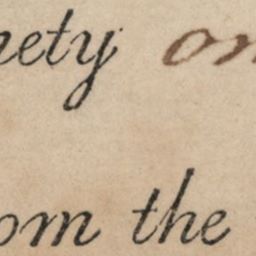 nety on
om the